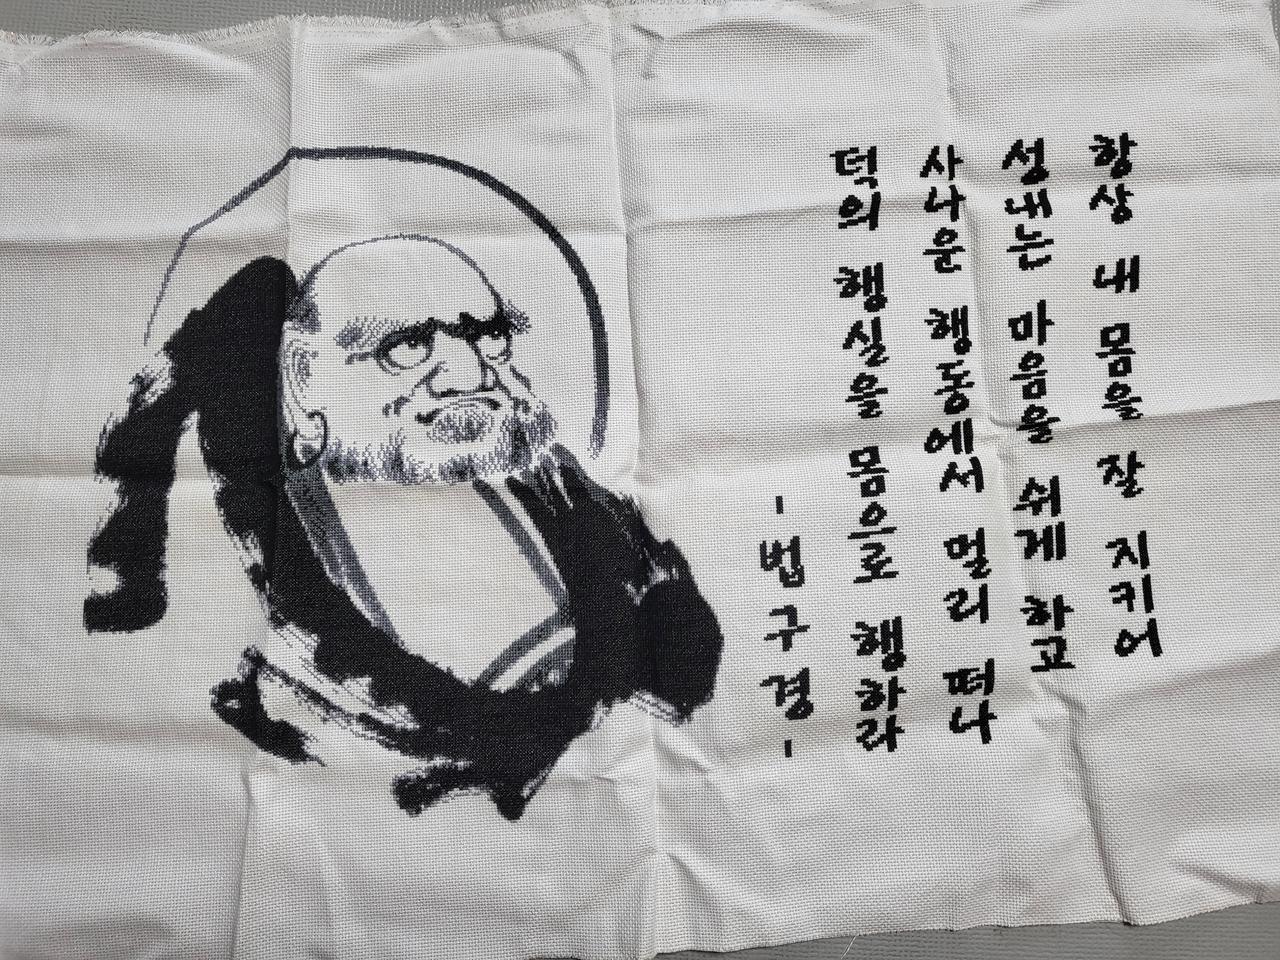 항상 내 몸을 잘 지키어
성내는 마음을 쉬게 하고
사나운 행동에서 멀리 떠나
덕의 행실을 몸으로 행하라
- 법구경 -